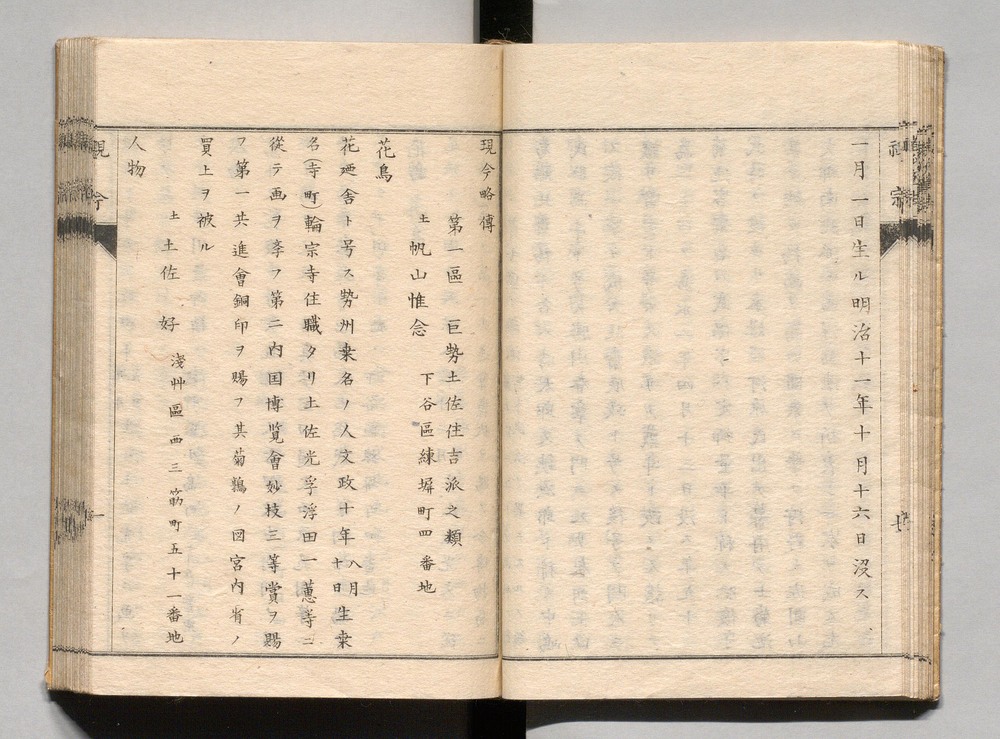 一月一日生ル明治十一年十月十六日没ス
現今略傳
第一區 巨勢土佐住吉派之類
土 帆山惟念 下谷區練塀町四番地
花鳥
花廼舎ト号ス勢州桒名ノ人文政十年八月十日生桒
名(寺町)輪宗寺住職タリ土佐光孚浮田一蕙等ニ
従テ画ヲ李フ第二内国博覧會妙枝三等賞ヲ賜
フ第一共進會銅印ヲ賜フ其菊鶉ノ図宮内省ノ
買上ヲ被ル
土 土佐 好 淺艸區西三筋町五十一番地
人物
現今
一